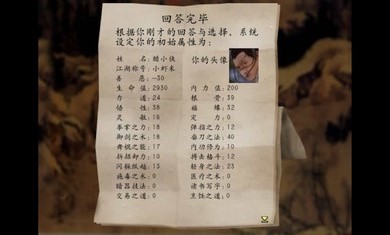 回答完毕
根据你刚才的回答与选择，系统
设定你的初始属性为：
姓 名：醋小侠
江湖称号：小虾米
善 恶：-30
你的头像
生 命 值：2930 内 力 值：200
力 道：24 根 骨：39
悟 性：38 福 缘：32
灵 敏：16 定 力：0
拳掌之力：18 弹指之力：12
御剑之术：18 刀之法：40
舞棍之能：17 内功修为：10
拆招卸力：10 搏击格斗：12
闪躲纵跃：13 轻身之法：23
施毒之术：0 医疗之术：0
暗器技法：0 读书写字：0
交易之道：0 烹饪之道：0